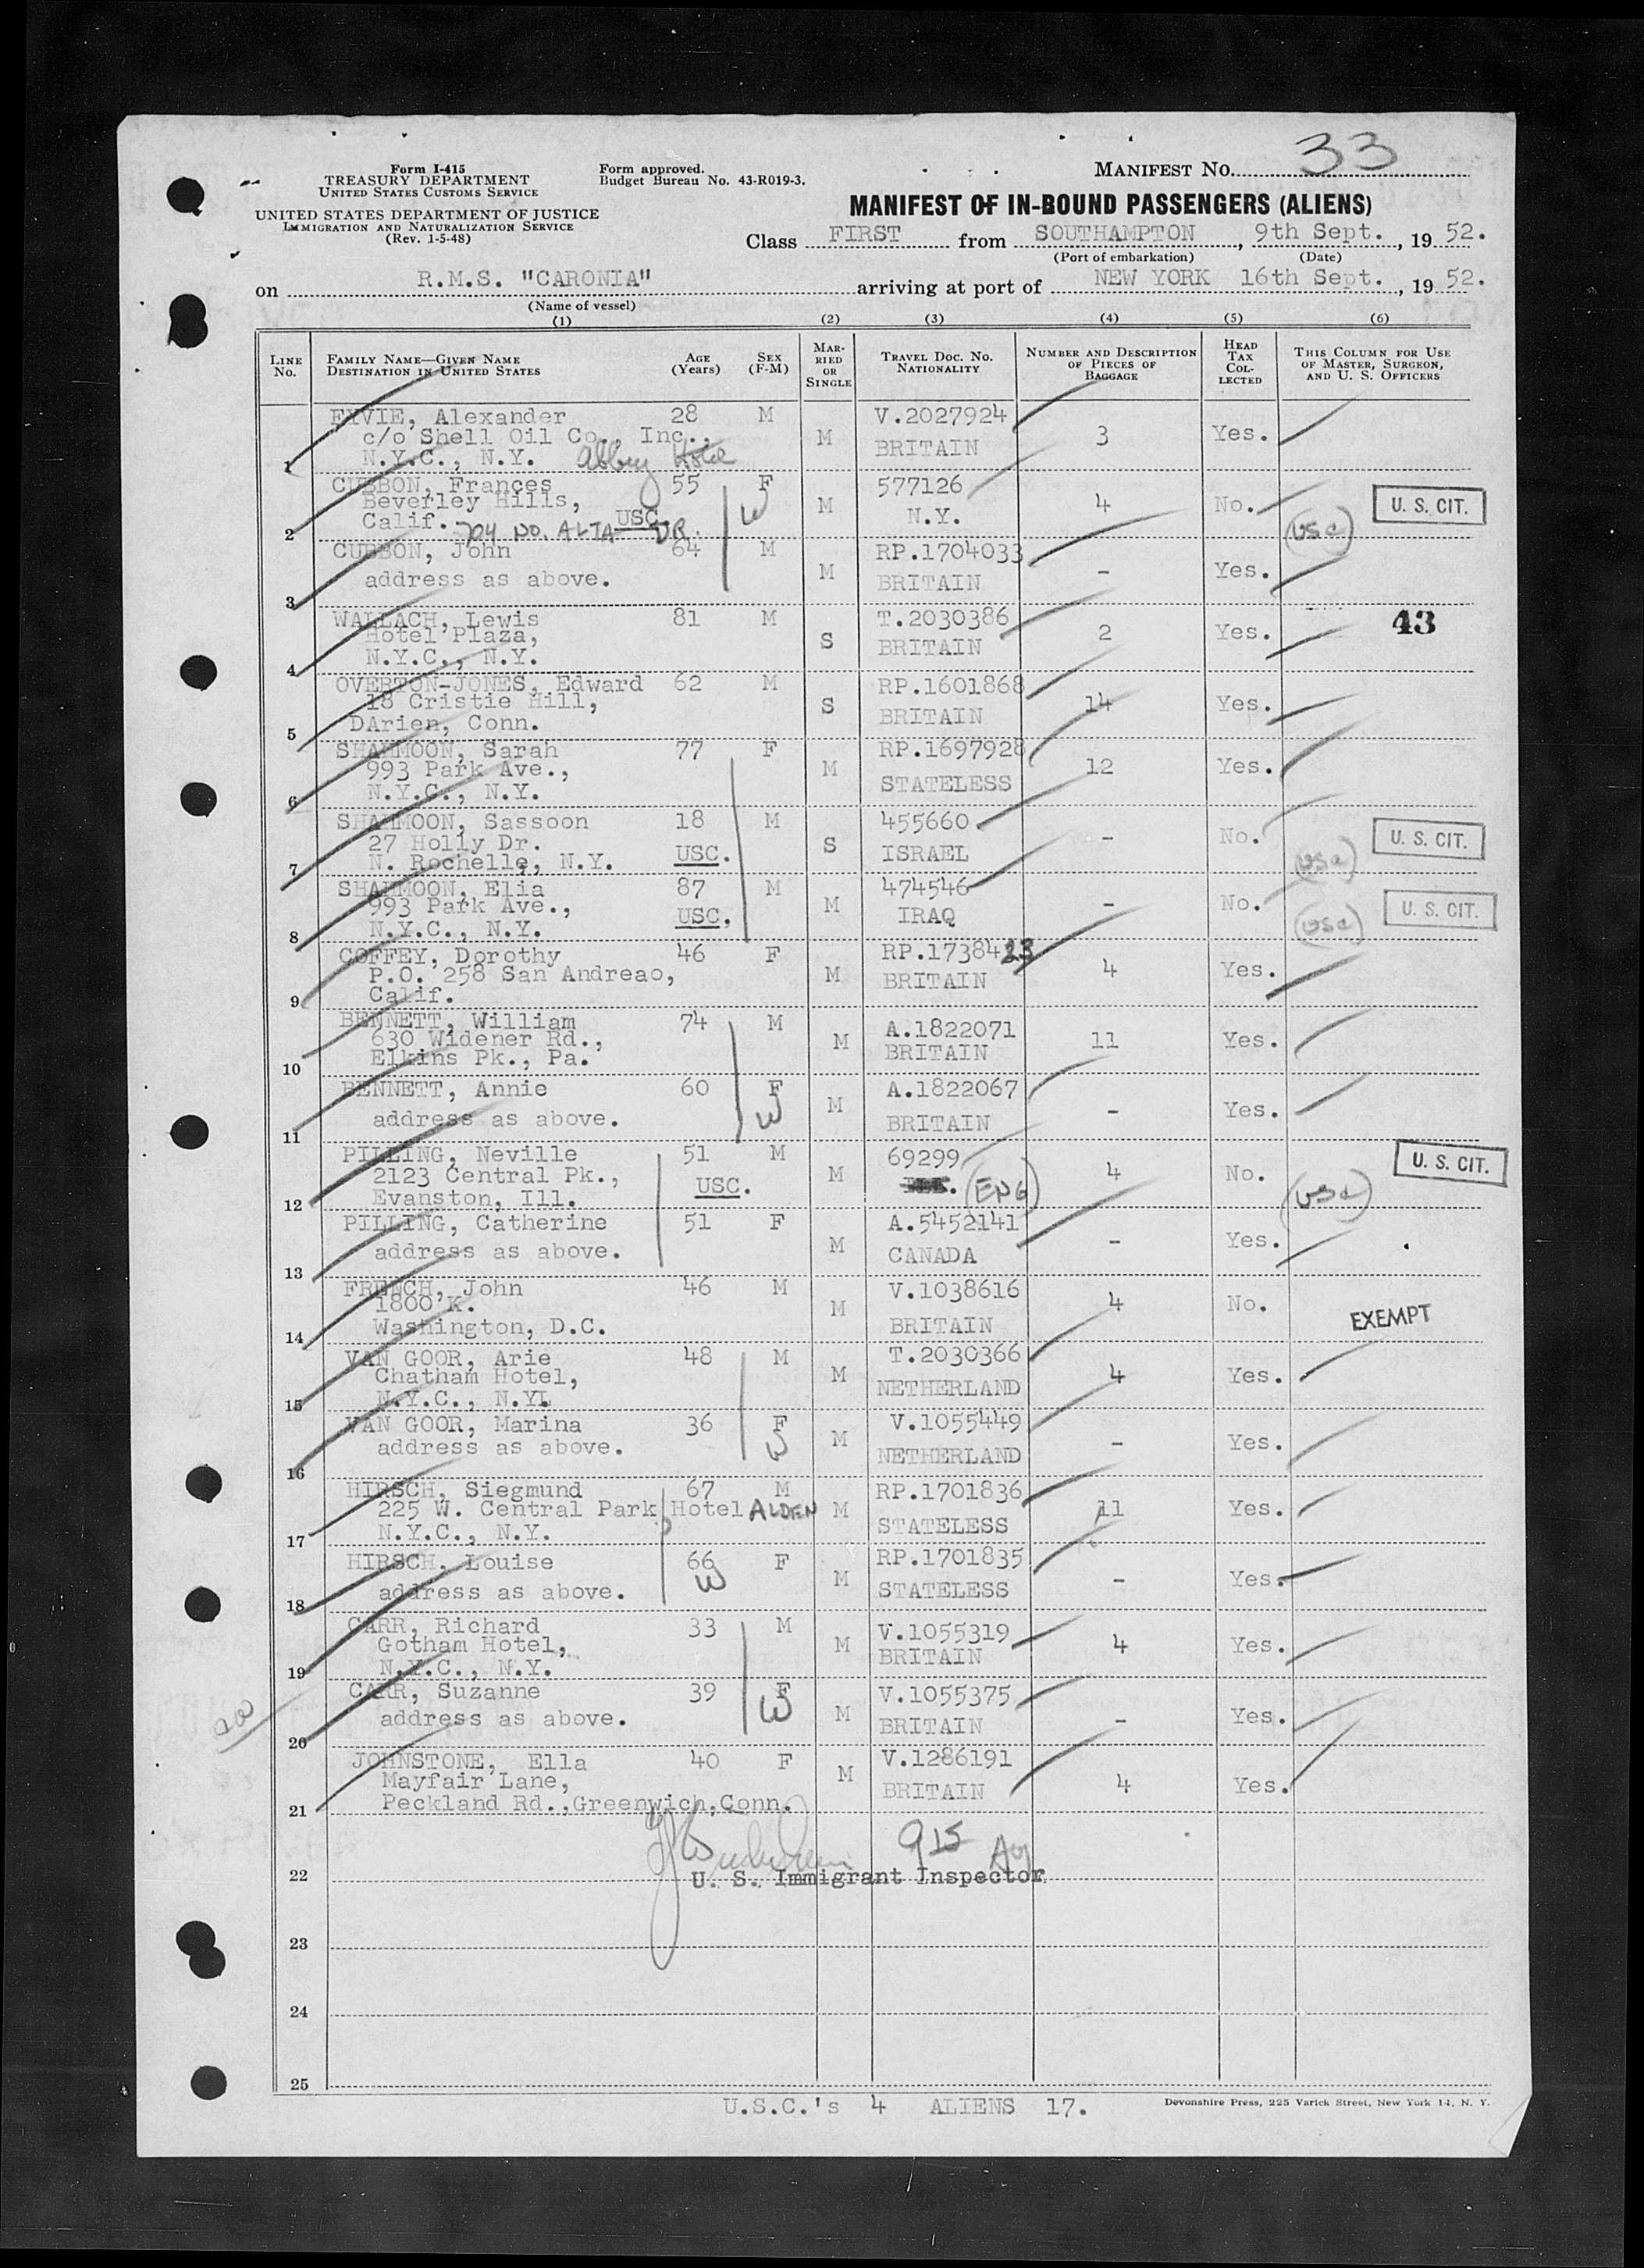 Form I-415
TREASURY DEPARTMENT
UNITED STATES CUSTOMS SERVICE
UNITED STATES DEPARTMENT OF JUSTICE
IMMIGRATION AND NATURALIZATION SERVICE
(Rev. 1-5-48)
Form approved.
Budget Bureau No. 43-R019-3.
MANIFEST NO. 33
MANIFEST OF IN-BOUND PASSENGERS (ALIENS)
Class FIRST from SOUTHAMPTON, 9th Sept., 1952.
(Port of embarkation) (Date)
on R.M.S. "CARONIA" arriving at port of NEW YORK 16th Sept., 1952.
(Name of vessel)
(1) (2) (3) (4) (5) (6)
LINE NO. FAMILY NAME—GIVEN NAME DESTINATION IN UNITED STATES AGE (Years) SEX (F-M) MARRIED OR SINGLE TRAVEL DOC. NO. NATIONALITY NUMBER AND DESCRIPTION OF PIECES OF BAGGAGE HEAD TAX COLLECTED THIS COLUMN FOR USE OF MASTER, SURGEON, AND U. S. OFFICERS
Alexander 28 M V.2027924
c/o Shell Oil Co., Inc., M 3 Yes.
1 N.Y.C., N.Y. Abbey Hotel BRITAIN
CUBBON, Frances 55 F 577126
Beverley Hills, W M 4 No. U. S. CIT.
2 Calif. 704 NO. ALTA DR. USC. N.Y. (USC)
CUBBON, John 64 M RP.1704033
3 address as above. M BRITAIN - Yes.
WALLACH, Lewis 81 M T.2030386 43
Hotel Plaza, S 2 Yes.
4 N.Y.C., N.Y. BRITAIN
OVERTON-JONES, Edward 62 M RP.1601868
18 Cristie Hill, S 14 Yes.
5 DArien, Conn. BRITAIN
SHAHMOON, Sarah 77 F RP.1697928
993 Park Ave., M 12 Yes.
6 N.Y.C., N.Y. STATELESS
SHAHMOON, Sassoon 18 M 455660
27 Holly Dr. S - No. U. S. CIT.
7 N. Rochelle, N.Y. USC. ISRAEL (USC)
SHAHMOON, Elia 87 M 474546
993 Park Ave., M - No. U. S. CIT.
8 N.Y.C., N.Y. USC. IRAQ (USC)
COFFEY, Dorothy 46 F RP.1738423
P.O. 258 San Andreao, M 4 Yes.
9 Calif. BRITAIN
BENNETT, William 74 M A.1822071
630 Widener Rd., M 11 Yes.
10 Elkins Pk., Pa. BRITAIN
BENNETT, Annie 60 F A.1822067
11 address as above. W M BRITAIN - Yes.
PILLING, Neville 51 M 69299 U. S. CIT.
2123 Central Pk., M 4 No.
12 Evanston, Ill. USC. (ENG) (USC)
PILLING, Catherine 51 F A.5452141
13 address as above. M CANADA - Yes.
FRENCH, John 46 M V.1038616
1800 K. M 4 No. EXEMPT
14 Washington, D.C. BRITAIN
VAN GOOR, Arie 48 M T.2030366
Chatham Hotel, M 4 Yes.
15 N.Y.C., N.Y. NETHERLAND
VAN GOOR, Marina 36 F V.1055449
16 address as above. W M NETHERLAND - Yes.
HIRSCH, Siegmund 67 M RP.1701836
225 W. Central Park Hotel ALDEN M 11 Yes.
17 N.Y.C., N.Y. STATELESS
HIRSCH, Louise 66 F RP.1701835
18 address as above. W M STATELESS - Yes.
CARR, Richard 33 M V.1055319
Gotham Hotel, M 4 Yes.
19 N.Y.C., N.Y. BRITAIN
CARR, Suzanne 39 F V.1055375
20 address as above. W M BRITAIN - Yes.
JOHNSTONE, Ella 40 F V.1286191
Mayfair Lane, M 4 Yes.
21 Peckland Rd.,Greenwich,Conn. BRITAIN
915
22 U. S. Immigrant Inspector
23
24
25
U.S.C.'s 4 ALIENS 17.
Devonshire Press, 225 Varick Street, New York 14, N. Y.